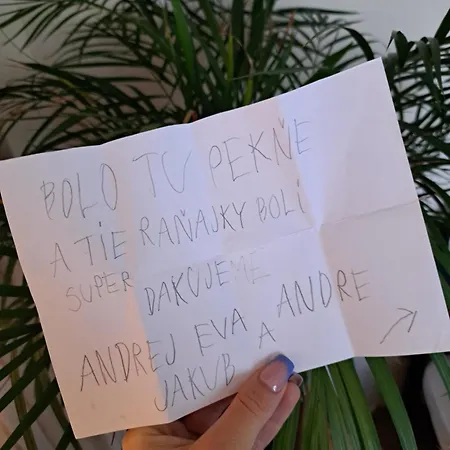 BOLO TU PEKŇE
A TIE RAŇAJKY BOLI
SUPER DAKUJEME
ANDREJ EVA ANDRE
JAKUB A